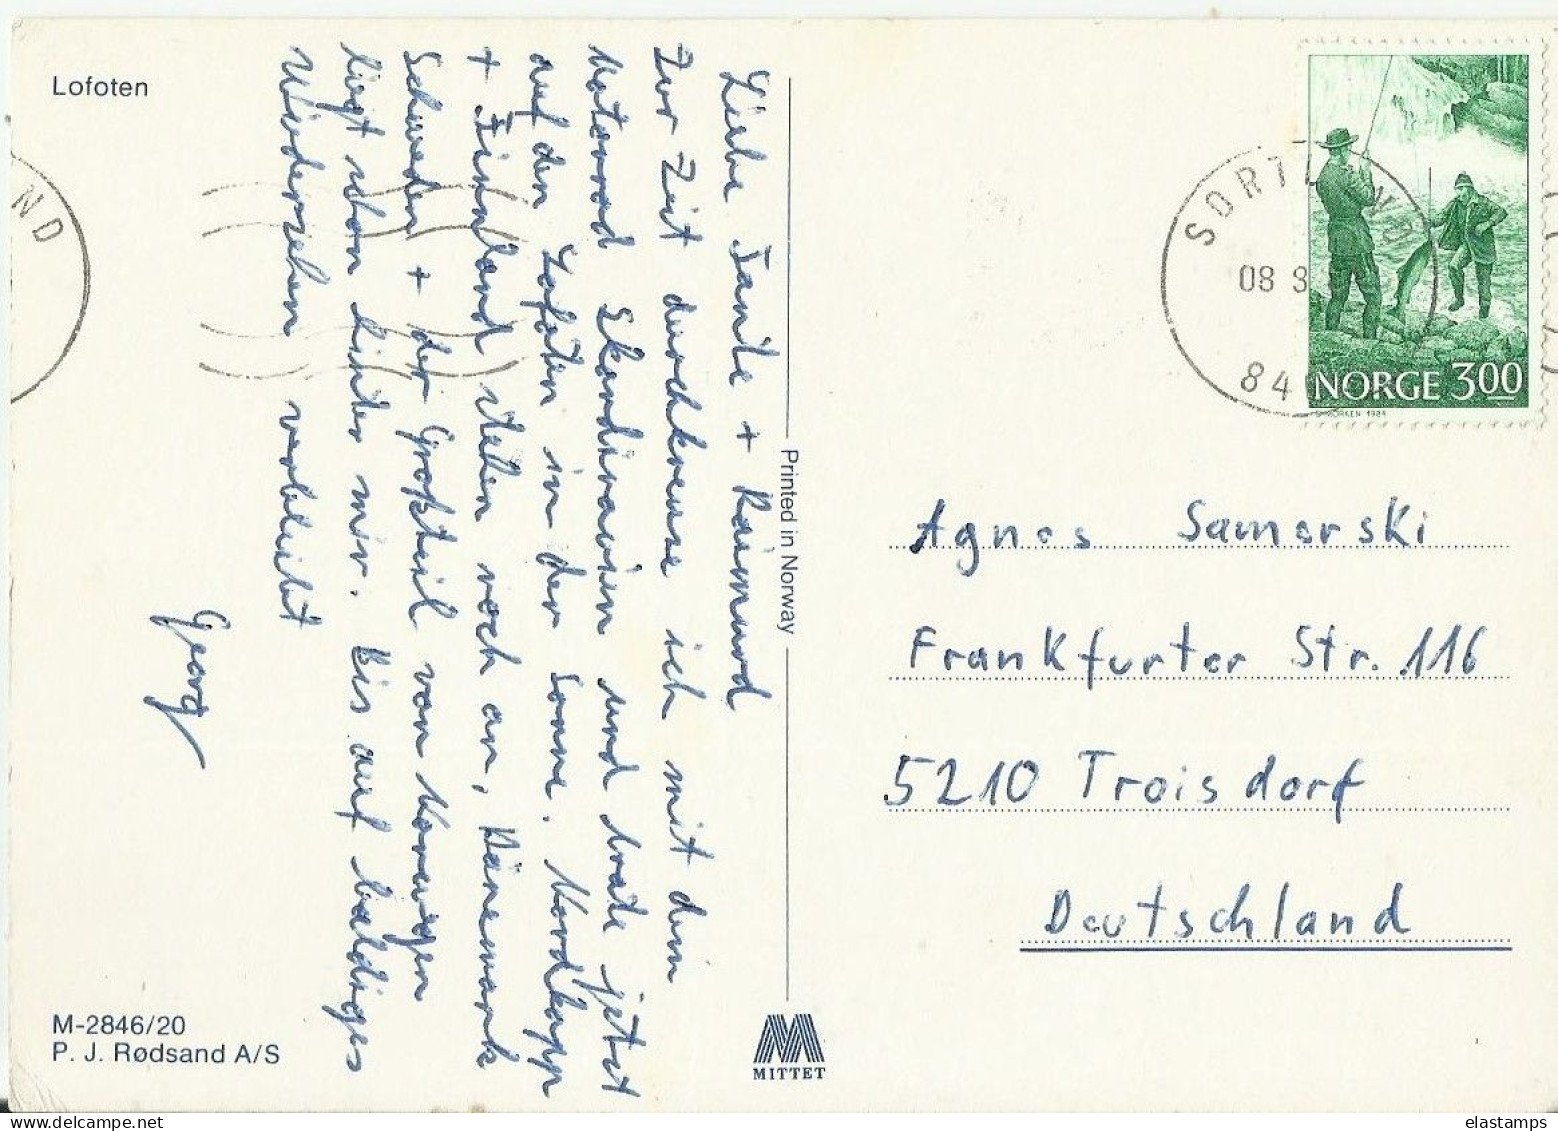 Lofoten
Liebe Tante + Raimund
Zur Zeit durchkreuze ich mit dem
Motorrad Skandinavien und brate jetzt
auf den Lofoten in der Sonne. Nordkapp
+ Finnland stehen noch an, Dänemark
Schweden + der Großteil von Norwegen
liegt schon hinter mir. Bis auf baldiges
Wiedersehen verbleibt
Georg
M-2846/20
P. J. Rødsand A/S
Printed in Norway
MITTET
SORTLAND
08 8
84
NORGE 3.00
S. MORKEN 1984
Agnes Samerski
Frankfurter Str. 116
5210 Troisdorf
Deutschland
ND
elastamps